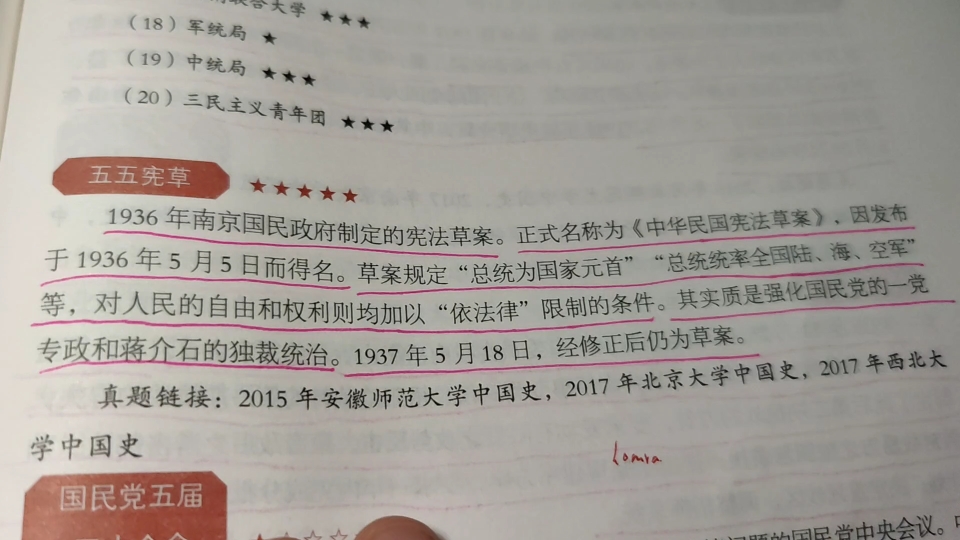 联合大学 ★★★
（18）军统局 ★
（19）中统局 ★★★
（20）三民主义青年团 ★★★
五五宪草 ★★★★★
1936 年南京国民政府制定的宪法草案。正式名称为《中华民国宪法草案》，因发布
于 1936 年 5 月 5 日而得名。草案规定“总统为国家元首”“总统统率全国陆、海、空军”
等，对人民的自由和权利则均加以“依法律”限制的条件。其实质是强化国民党的一党
专政和蒋介石的独裁统治。1937 年 5 月 18 日，经修正后仍为草案。
真题链接：2015 年安徽师范大学中国史，2017 年北京大学中国史，2017 年西北大
学中国史
国民党五届
问题的国民党中央会议。